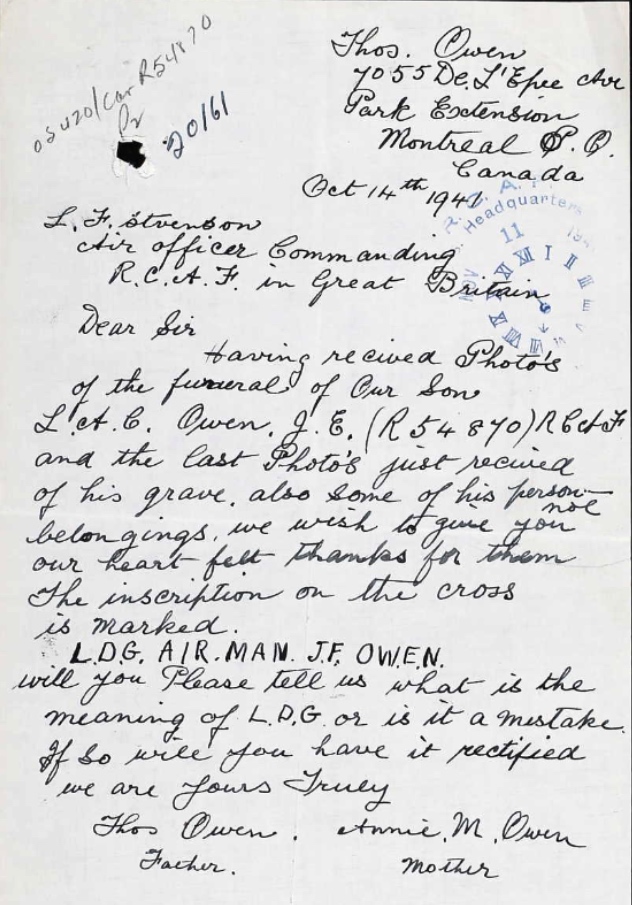 OS420/Can R54870
20/61
Thos. Owen
7055 De. L'Epee Ave
Park Extension
Montreal P. Q.
Canada
Oct 14th 1941
Headquarters
11
L. F. Stvenson
Air officer Commanding
R.C.A.F. in Great Britain
Dear Sir
Having recived Photo's
of the funeral of Our Son
L.A.C. Owen, J. E. (R54870) RCAF
and the last Photo's just recived
of his grave, also some of his person-
nol
belongings, we wish to give you
our heart felt thanks for them
The inscription on the cross
is marked.
L.D.G. AIR.MAN. J.F. OWEN.
will you Please tell us what is the
meaning of L.D.G. or is it a mistake.
If So will you have it rectified
we are yours Truely
Thos Owen. Annie. M. Owen
Father. Mother